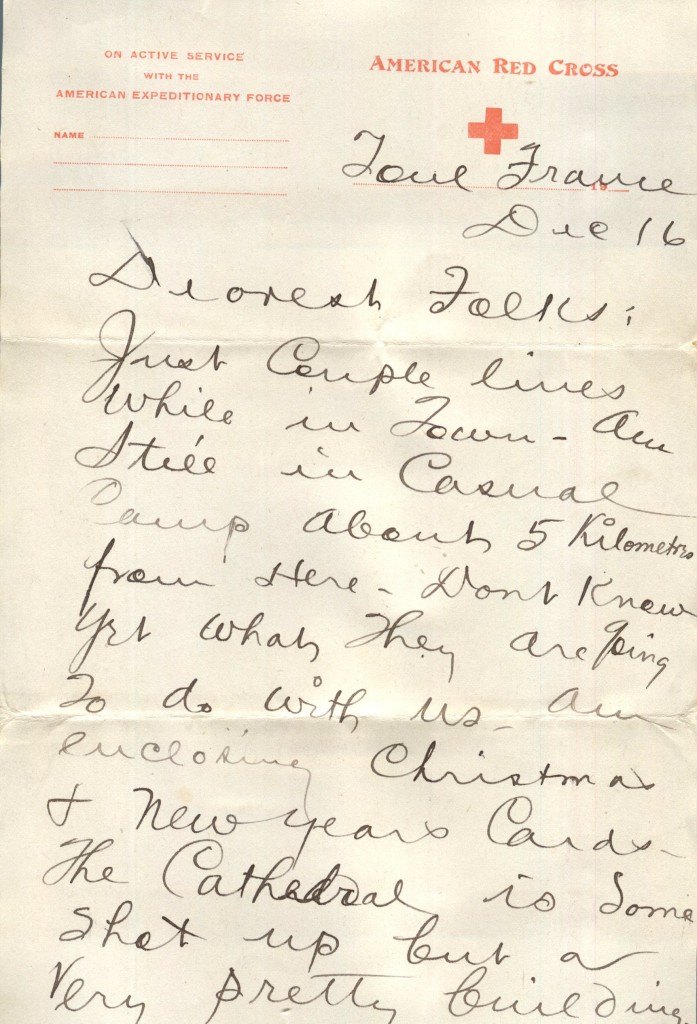 ON ACTIVE SERVICE
WITH THE
AMERICAN EXPEDITIONARY FORCE
NAME
AMERICAN RED CROSS
19
Toul France
Dec 16
Dearest Folks:
Just Couple lines
While in Town - Am
Still in Casual
Camp about 5 Kilometres
from Here - Dont Know
yet what They are going
To do with us - Am
enclosing Christmas
& New years Cards -
The Cathedral is Some
Shot up but a
Very pretty building